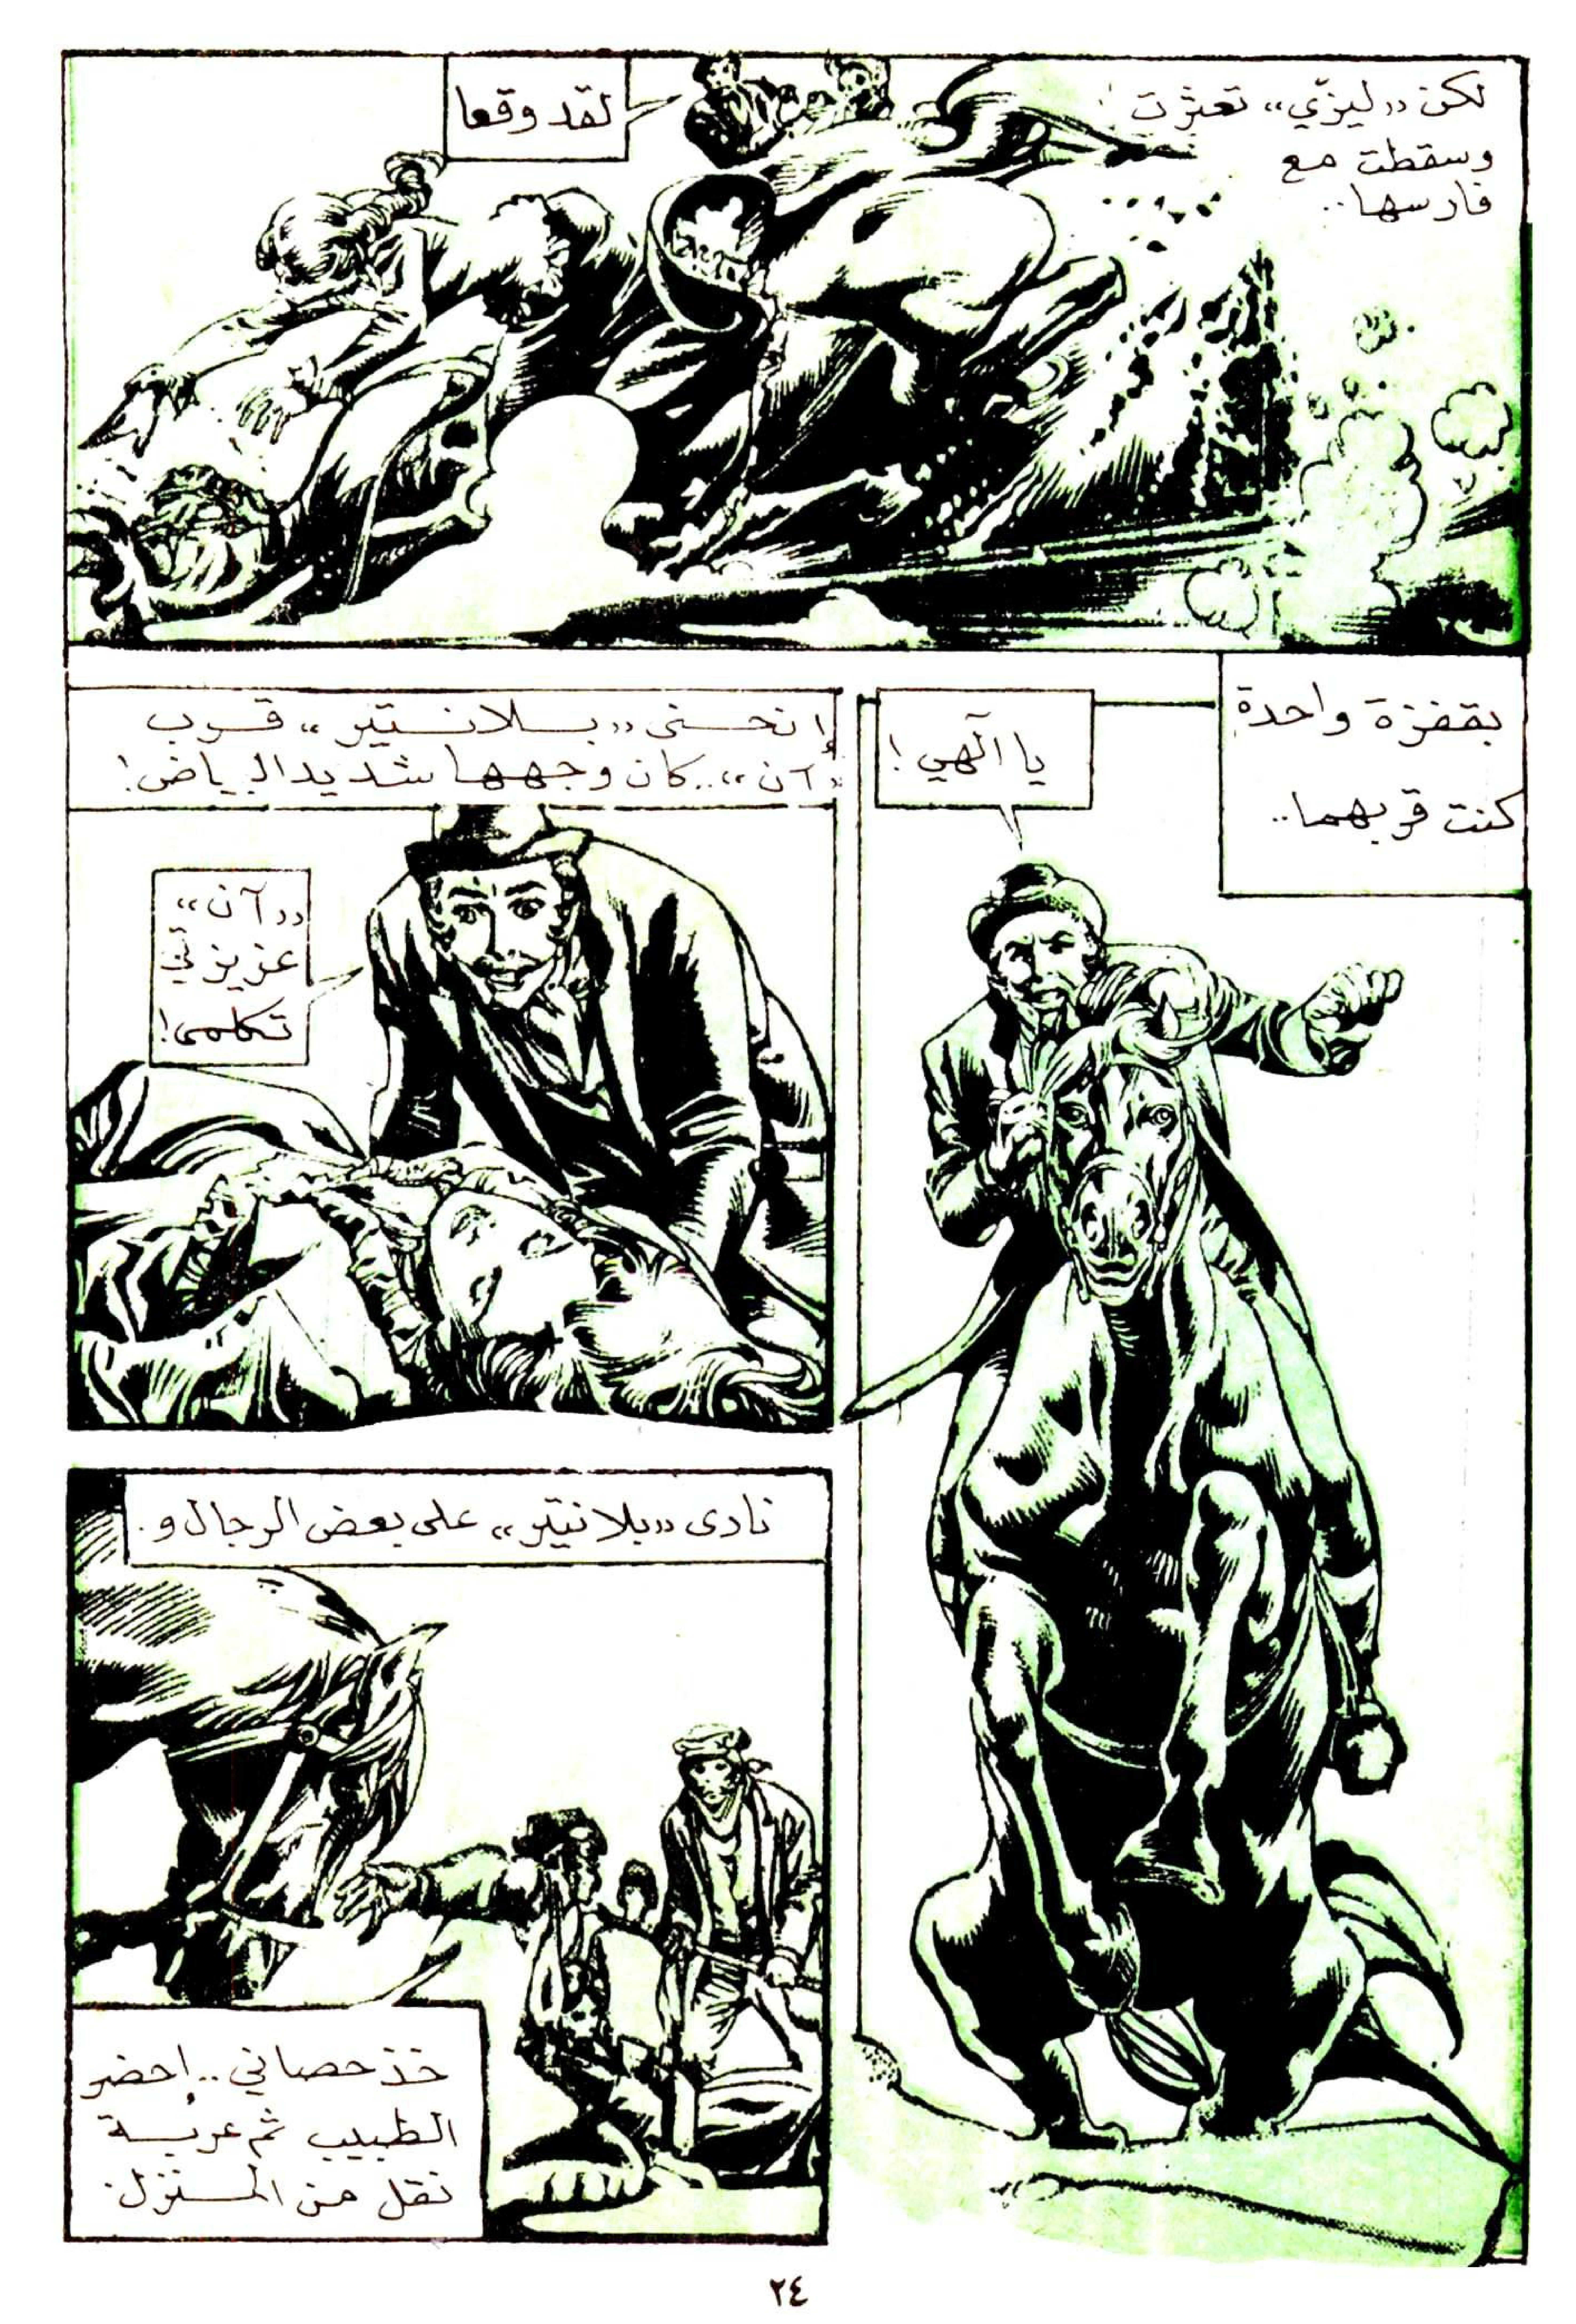 لكن «ليزّي» تعثرت
وسقطت مع
فارسها..
لقد وقعا
بقفزة واحدة
كنت قربهما..
يا آلهي!
إنحنى «بلانتير» قرب
«آن».. كان وجهها شديد البياض!
«آن»
عزيزتي
تكلمى!
نادى «بلانتير» على بعض الرجال و.
خذ حصاني.. إحضر
الطبيب ثم عربة
نقل من المنزل.
٢٤